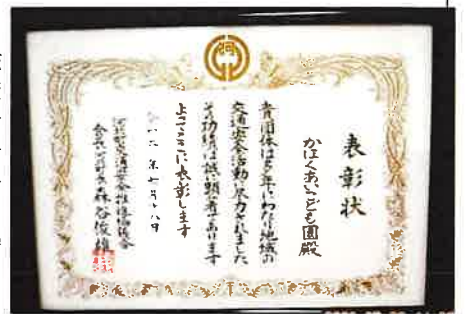 表彰状
かほくあいこども園殿
貴団体は多年にわたり地域の
交通安全活動に尽力されました
その功績は誠に顕著であります
よってここに表彰します
年七月 八日
会長 森谷俊雄